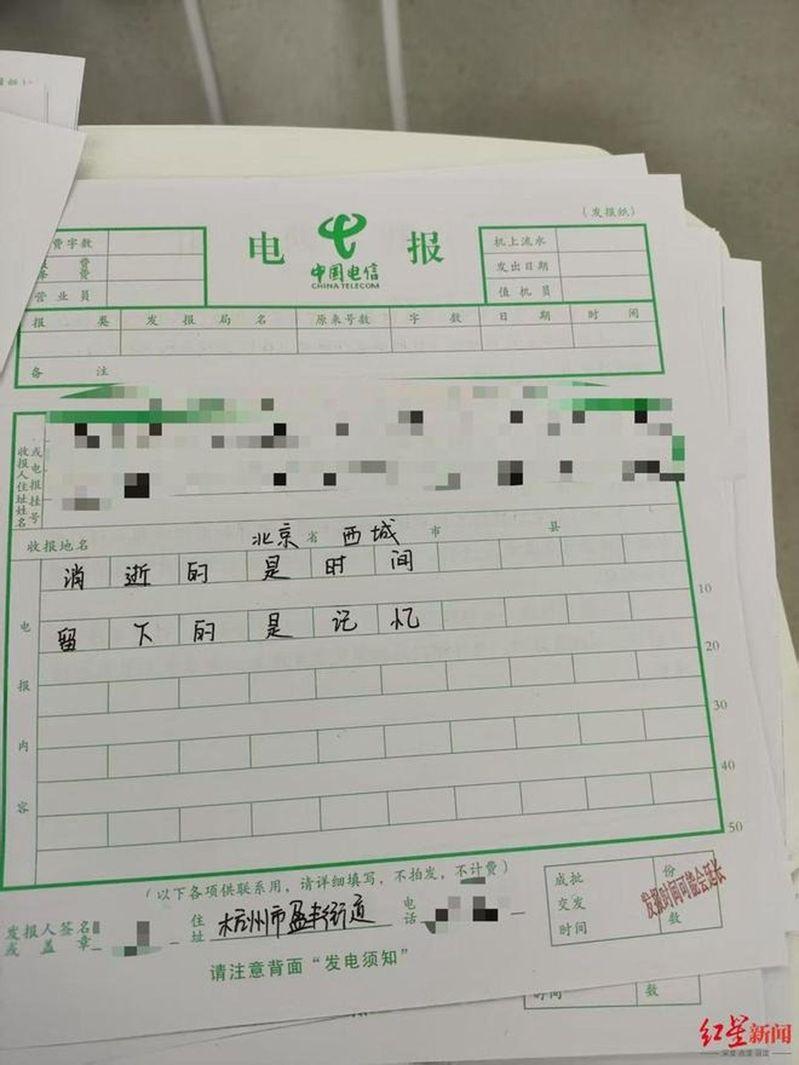 （发报纸）
费字数
费
营业员
电 报
中国电信
CHINA TELECOM
机上流水
发出日期
值机员
报类 发报局名 原来号数 字数 日期 时间
备注
收报人住址姓名
或电报挂号
收报地名 北京 省 西城 市 县
电报内容
消逝的是时间
10
留下的是记忆
20
30
40
50
（以下各项供联系用，请详细填写，不拍发，不计费）
发报人签名或盖章 住址 杭州市盈丰街道 电话
成批 份
交发
时间 数
发报时间可能会延长
请注意背面“发电须知”
时间 数
红星新闻